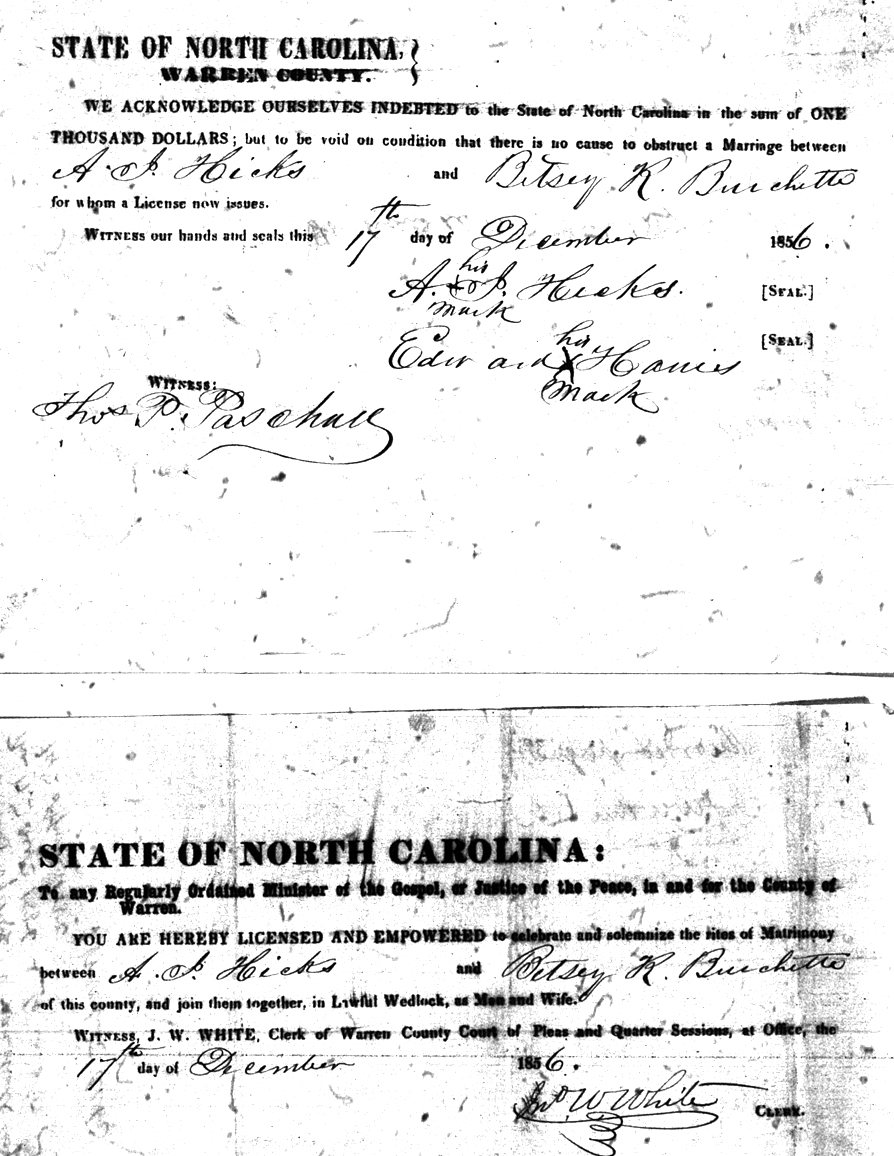 STATE OF NORTH CAROLINA, }
WARREN COUNTY.
WE ACKNOWLEDGE OURSELVES INDEBTED to the State of North Carolina in the sum of ONE
THOUSAND DOLLARS; but to be void on condition that there is no cause to obstruct a Marriage between
A. J. Hicks and Betsey K. Burchette
for whom a License now issues.
WITNESS our hands and seals this 17th day of December 1856.
his
A. J. Hicks. [SEAL.]
mark
his [SEAL.]
Edward X Harris
mark
WITNESS:
Thos P. Paschall
STATE OF NORTH CAROLINA:
To any Regularly Ordained Minister of the Gospel, or Justice of the Peace, in and for the County of
Warren.
YOU ARE HEREBY LICENSED AND EMPOWERED to celebrate and solemnize the rites of Matrimony
between A. J. Hicks and Betsey K. Burchette
of this county, and join them together, in Lawful Wedlock, as Man and Wife.
WITNESS, J. W. WHITE, Clerk of Warren County Court of Pleas and Quarter Sessions, at Office, the
17th day of December 1856.
Jno W White CLERK.